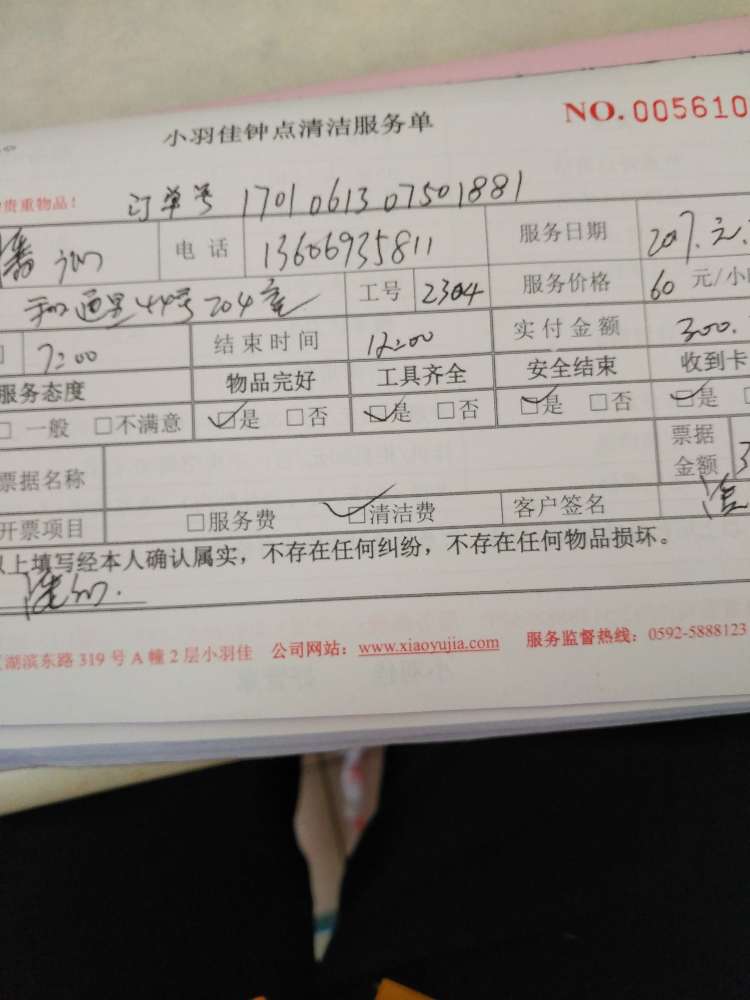 小羽佳钟点清洁服务单 NO. 005610
贵重物品! 订单号 1701061307501881
潘 电话 13606935811 服务日期 2017.元.
和通里44号204室 工号 2304 服务价格 60 元/小
7:00 结束时间 12:00 实付金额 300.
服务态度 物品完好 工具齐全 安全结束 收到卡
□ 一般 □不满意 □是 □否 □是 □否 □是 □否 □是
票据名称 票据金额 3
开票项目 □服务费 □清洁费 客户签名
以上填写经本人确认属实，不存在任何纠纷，不存在任何物品损坏。
湖滨东路 319 号 A 幢 2 层小羽佳 公司网站：www.xiaoyujia.com 服务监督热线：0592-5888123